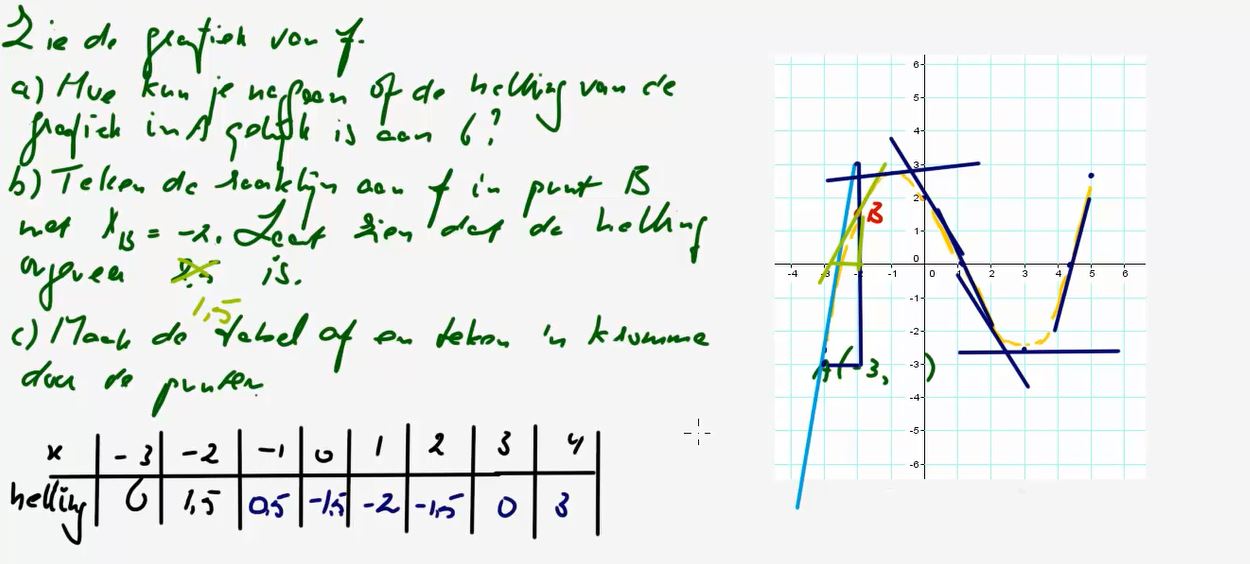 Zie de grafiek van f.
a) Hoe kun je nagaan of de helling van de
grafiek in A gelijk is aan 6?
b) Teken de raaklijn aan f in punt B
met x_B = -2. Laat zien dat de helling
ongeveer 2,5 is.
1,5
c) Maak de tabel af en teken 'n kromme
door de punten
x -3 -2 -1 0 1 2 3 4
helling 6 1,5 0,5 -1,5 -2 -1,5 0 3
6
5
4
3
2
1
0
-1
-2
-3
-4
-5
-6
-4 -3 -2 -1 0 1 2 3 4 5 6
B
A(-3, )